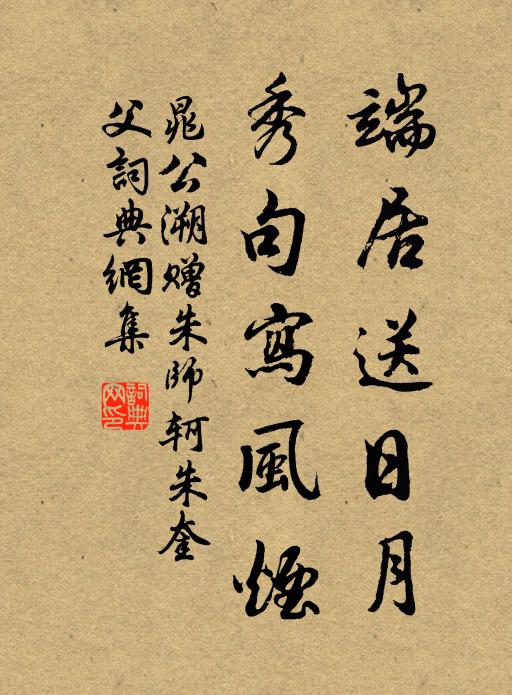 端居送日月
秀句寫風煙
晁公溯赠朱師轲朱奎
父詞典網集
詞典網印